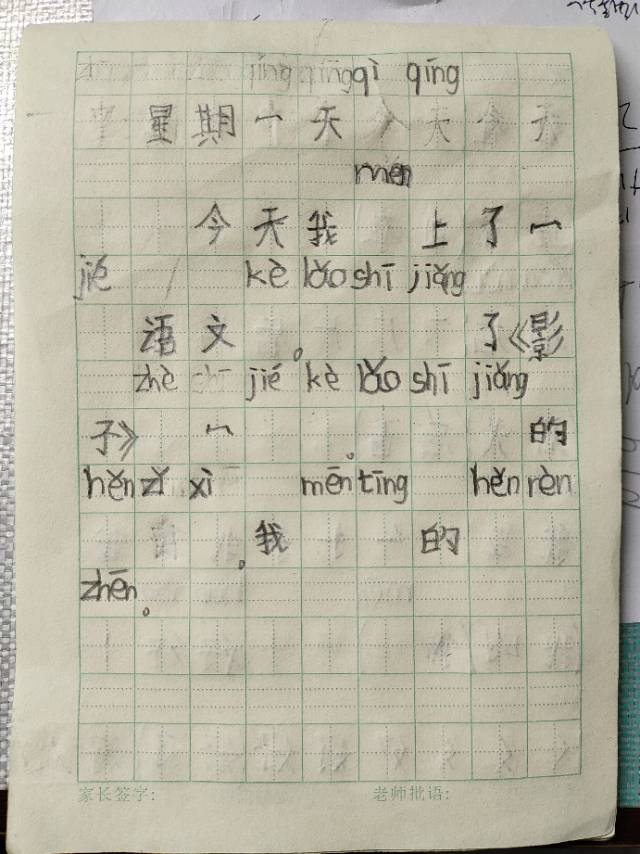 qì qíng
星期一 天
men
今天我 上了一
jié kè lǎo shī jiǎng
语文 。 了《影
zhè jié kè lǎo shī jiǎng
子》一 。 的
hěn zǐ xì mēn tīng hěn rèn
。我 的
zhēn 。
家长签字: 老师批语: